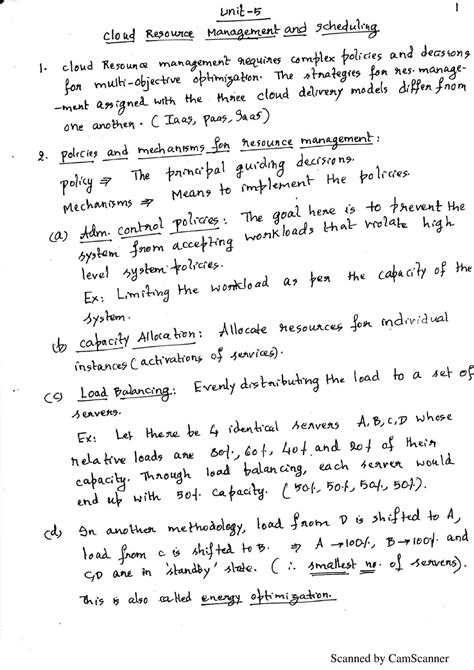 Unit-5
1
Cloud Resource Management and scheduling
1. Cloud Resource management requires complex policies and decisions
for multi-objective optimization. The strategies for res. manage-
-ment assigned with the three cloud delivery models differ from
one another. (Iaas, paas, Saas)
2. policies and mechanisms for resource management:
policy ⇒ The principal guiding decisions.
Mechanisms ⇒ Means to implement the policies.
(a) Adm. control policies: The goal here is to prevent the
system from accepting workloads that violate high
level system policies.
Ex: Limiting the workload as per the capacity of the
system.
(b) capacity Allocation: Allocate resources for individual
instances (activations of services).
(c) Load Balancing: Evenly distributing the load to a set of
servers.
Ex: Let there be 4 identical servers A, B, C, D whose
relative loads are 80%, 60%, 40% and 20% of their
capacity. Through load balancing, each server would
end up with 50% capacity. (50%, 50%, 50%, 50%).
(d) In another methodology, load from D is shifted to A,
load from C is shifted to B. ⇒ A → 100%, B → 100% and
C,D are in 'standby' state. (∴ smallest no. of servers).
This is also called energy optimization.
Scanned by CamScanner